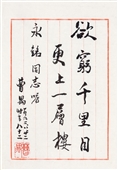 欲窮千里目
更上一層樓
永铭同志嘱
曹禺